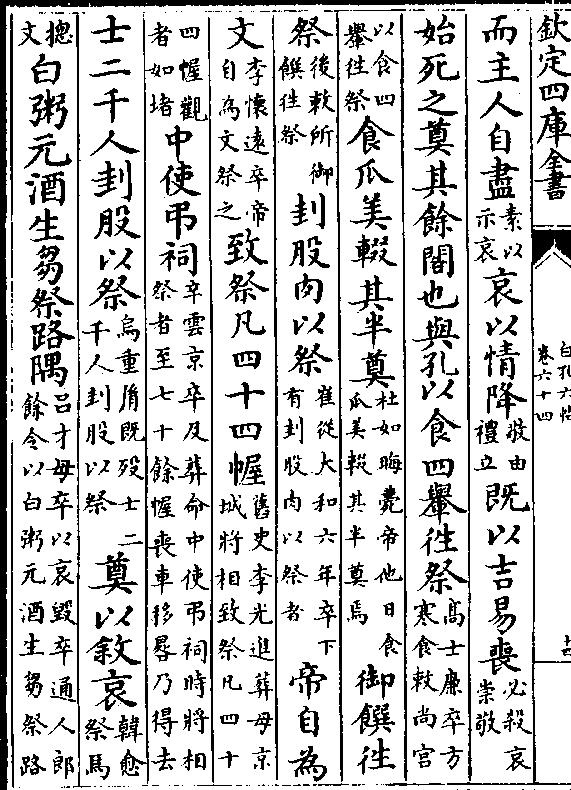 欽定四庫全書
白孔六帖
卷六十四
十
而主人自盡素以示哀哀以情降敬由禮立既以吉易喪必殺哀崇敬
始死之奠其餘閣也與孔以食四轝徃祭高士廉卒方寒食敕尚宫
以食四轝徃祭食瓜美輟其半奠杜如晦薨帝他日食瓜美輟其半奠焉御饌徃
祭後敕所御饌徃祭刲股肉以祭崔從大和六年卒下有刲股肉以祭者帝自為
文李懷遠卒帝自為文祭之致祭凡四十四幄舊史李光進葬母京城將相致祭凡四十
四幄觀者如堵中使弔祠辛雲京卒及葬命中使弔祠時將相祭者至七十餘幄喪車移晷乃得去
士二千人刲股以祭烏重㣧既殁士二千人刲股以祭奠以敘哀韓愈祭馬
摠文白粥元酒生芻祭路隅吕才母卒以哀毁卒通人郎餘令以白粥元酒生芻祭路